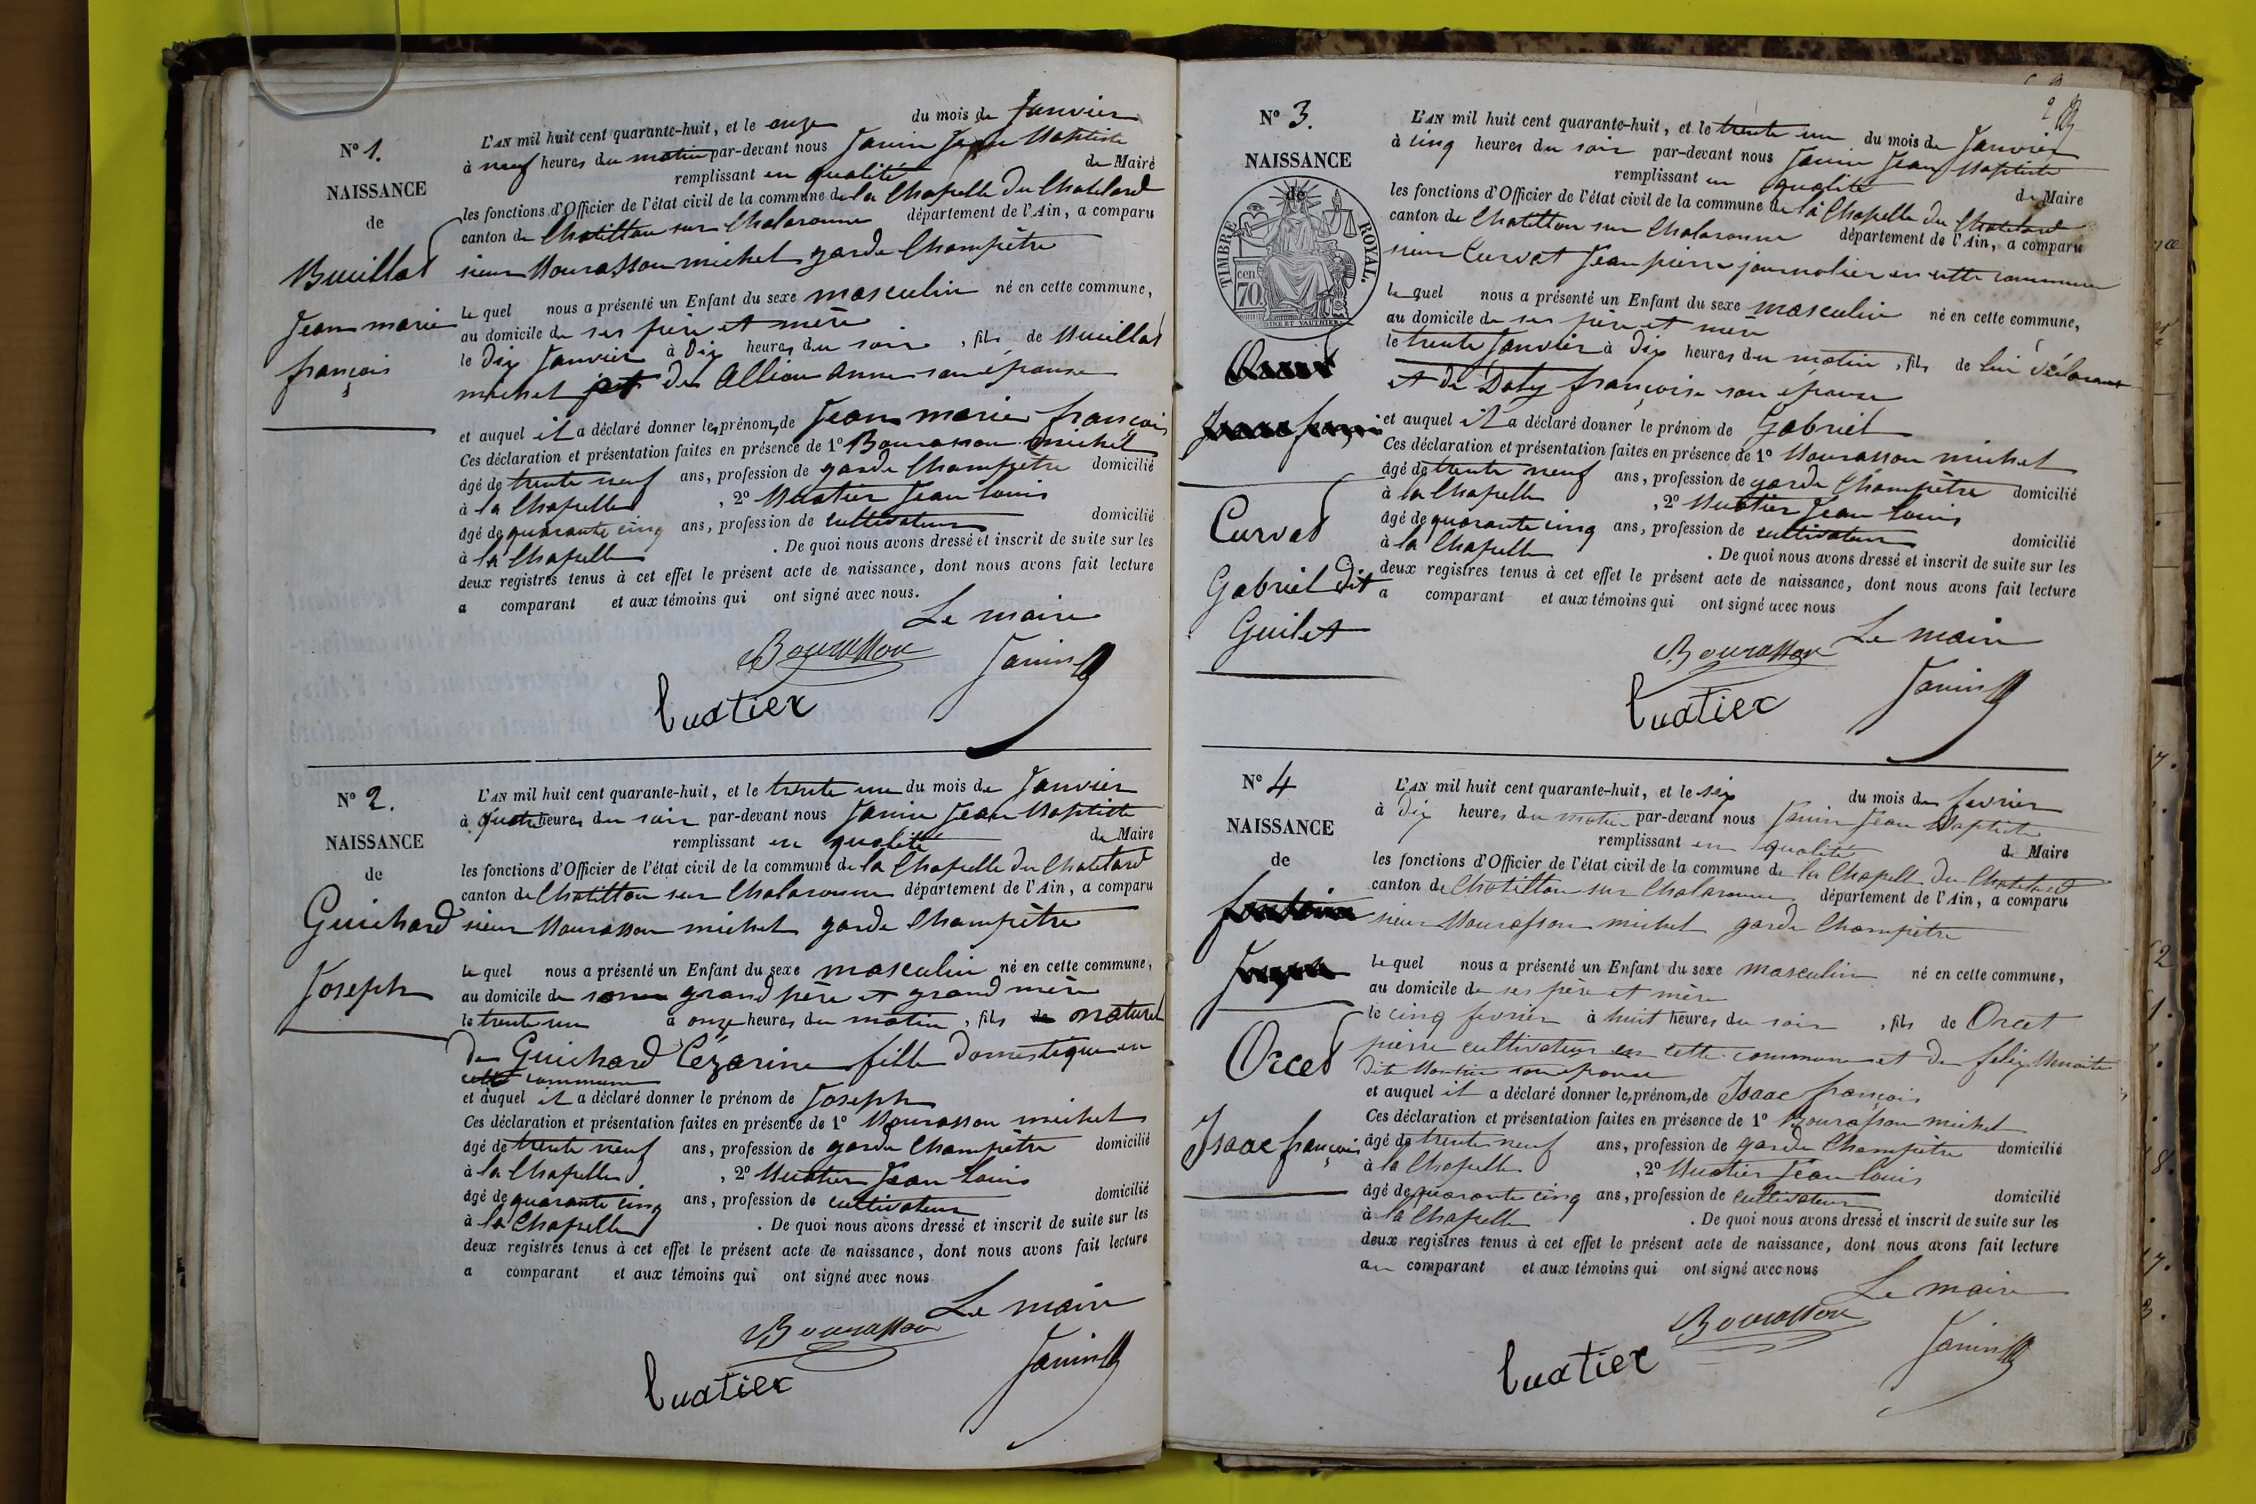 N° 1.
NAISSANCE
de
Buillat
Jean marie
françois
L'AN mil huit cent quarante-huit, et le onze du mois de Janvier
à neuf heures du matin par-devant nous Janin Jean Baptiste
remplissant en qualité de Maire
les fonctions d'Officier de l'état civil de la commune de la Chapelle du Chatelard
canton de Chatillon sur Chalaronne département de l'Ain, a comparu
sieur Bourasson michel garde Champêtre
le quel nous a présenté un Enfant du sexe masculin né en cette commune,
au domicile de ses père et mère
le dix Janvier à dix heures du soir, fils de Buillat
michel et de Alliou Anne son épouse
et auquel il a déclaré donner les prénoms de Jean marie françois
Ces déclaration et présentation faites en présence de 1° Bourasson michel
âgé de trente neuf ans, profession de garde Champêtre domicilié
à la Chapelle, 2° Buatier Jean Louis
âgé de quarante cinq ans, profession de cultivateur domicilié
à la Chapelle. De quoi nous avons dressé et inscrit de suite sur les
deux registres tenus à cet effet le présent acte de naissance, dont nous avons fait lecture
a comparant et aux témoins qui ont signé avec nous.
Le maire
Bourasson
Janin
buatier
N° 2.
NAISSANCE
de
Guichard
Joseph
L'AN mil huit cent quarante-huit, et le trente un du mois de Janvier
à quatre heures du soir par-devant nous Janin Jean Baptiste
remplissant en qualité de Maire
les fonctions d'Officier de l'état civil de la commune de la Chapelle du Chatelard
canton de Chatillon sur Chalaronne département de l'Ain, a comparu
sieur Bourasson michel garde Champêtre
le quel nous a présenté un Enfant du sexe masculin né en cette commune,
au domicile de grand père et grand mère
le trente un à onze heures du matin, fils naturel
de Guichard Cézarine fille domestique en
cette commune
et auquel il a déclaré donner le prénom de Joseph
Ces déclaration et présentation faites en présence de 1° Bourasson michel
âgé de trente neuf ans, profession de garde Champêtre domicilié
à la Chapelle, 2° Buatier Jean Louis
âgé de quarante cinq ans, profession de cultivateur domicilié
à la Chapelle. De quoi nous avons dressé et inscrit de suite sur les
deux registres tenus à cet effet le présent acte de naissance, dont nous avons fait lecture
a comparant et aux témoins qui ont signé avec nous
Le maire
Bourasson
Janin
buatier
N° 3.
NAISSANCE
de
TIMBRE ROYAL.
70 cen
Curvat
Gabriel dit
Guilet
L'AN mil huit cent quarante-huit, et le trente un du mois de Janvier
à cinq heures du soir par-devant nous Janin Jean Baptiste
remplissant en qualité de Maire
les fonctions d'Officier de l'état civil de la commune de la Chapelle du Chatelard
canton de Chatillon sur Chalaronne département de l'Ain, a comparu
sieur Curvat Jean pierre journalier en cette commune
le quel nous a présenté un Enfant du sexe masculin né en cette commune,
au domicile de ses père et mère
le trente Janvier à dix heures du matin, fils de lui déclarant
et de Daty françoise son épouse
et auquel il a déclaré donner le prénom de Gabriel
Ces déclaration et présentation faites en présence de 1° Bourasson michel
âgé de trente neuf ans, profession de garde Champêtre domicilié
à la Chapelle, 2° Buatier Jean Louis
âgé de quarante cinq ans, profession de cultivateur domicilié
à la Chapelle. De quoi nous avons dressé et inscrit de suite sur les
deux registres tenus à cet effet le présent acte de naissance, dont nous avons fait lecture
a comparant et aux témoins qui ont signé avec nous
Le maire
Bourasson
Janin
buatier
N° 4
NAISSANCE
de
Orcet
Isaac françois
L'AN mil huit cent quarante-huit, et le six du mois de fevrier
à dix heures du matin par-devant nous Janin Jean Baptiste
remplissant en qualité de Maire
les fonctions d'Officier de l'état civil de la commune de la Chapelle du Chatelard
canton de Chatillon sur Chalaronne département de l'Ain, a comparu
sieur Bourasson michel garde Champêtre
le quel nous a présenté un Enfant du sexe masculin né en cette commune,
au domicile de ses père et mère
le cinq fevrier à huit heures du soir, fils de Orcet
pierre cultivateur en cette commune et de felix Benoite
dite son épouse
et auquel il a déclaré donner les prénoms de Isaac françois
Ces déclaration et présentation faites en présence de 1° Bourasson michel
âgé de trente neuf ans, profession de garde Champêtre domicilié
à la Chapelle, 2° Buatier Jean Louis
âgé de quarante cinq ans, profession de cultivateur domicilié
à la Chapelle. De quoi nous avons dressé et inscrit de suite sur les
deux registres tenus à cet effet le présent acte de naissance, dont nous avons fait lecture
au comparant et aux témoins qui ont signé avec nous
Le maire
Bourasson
Janin
buatier